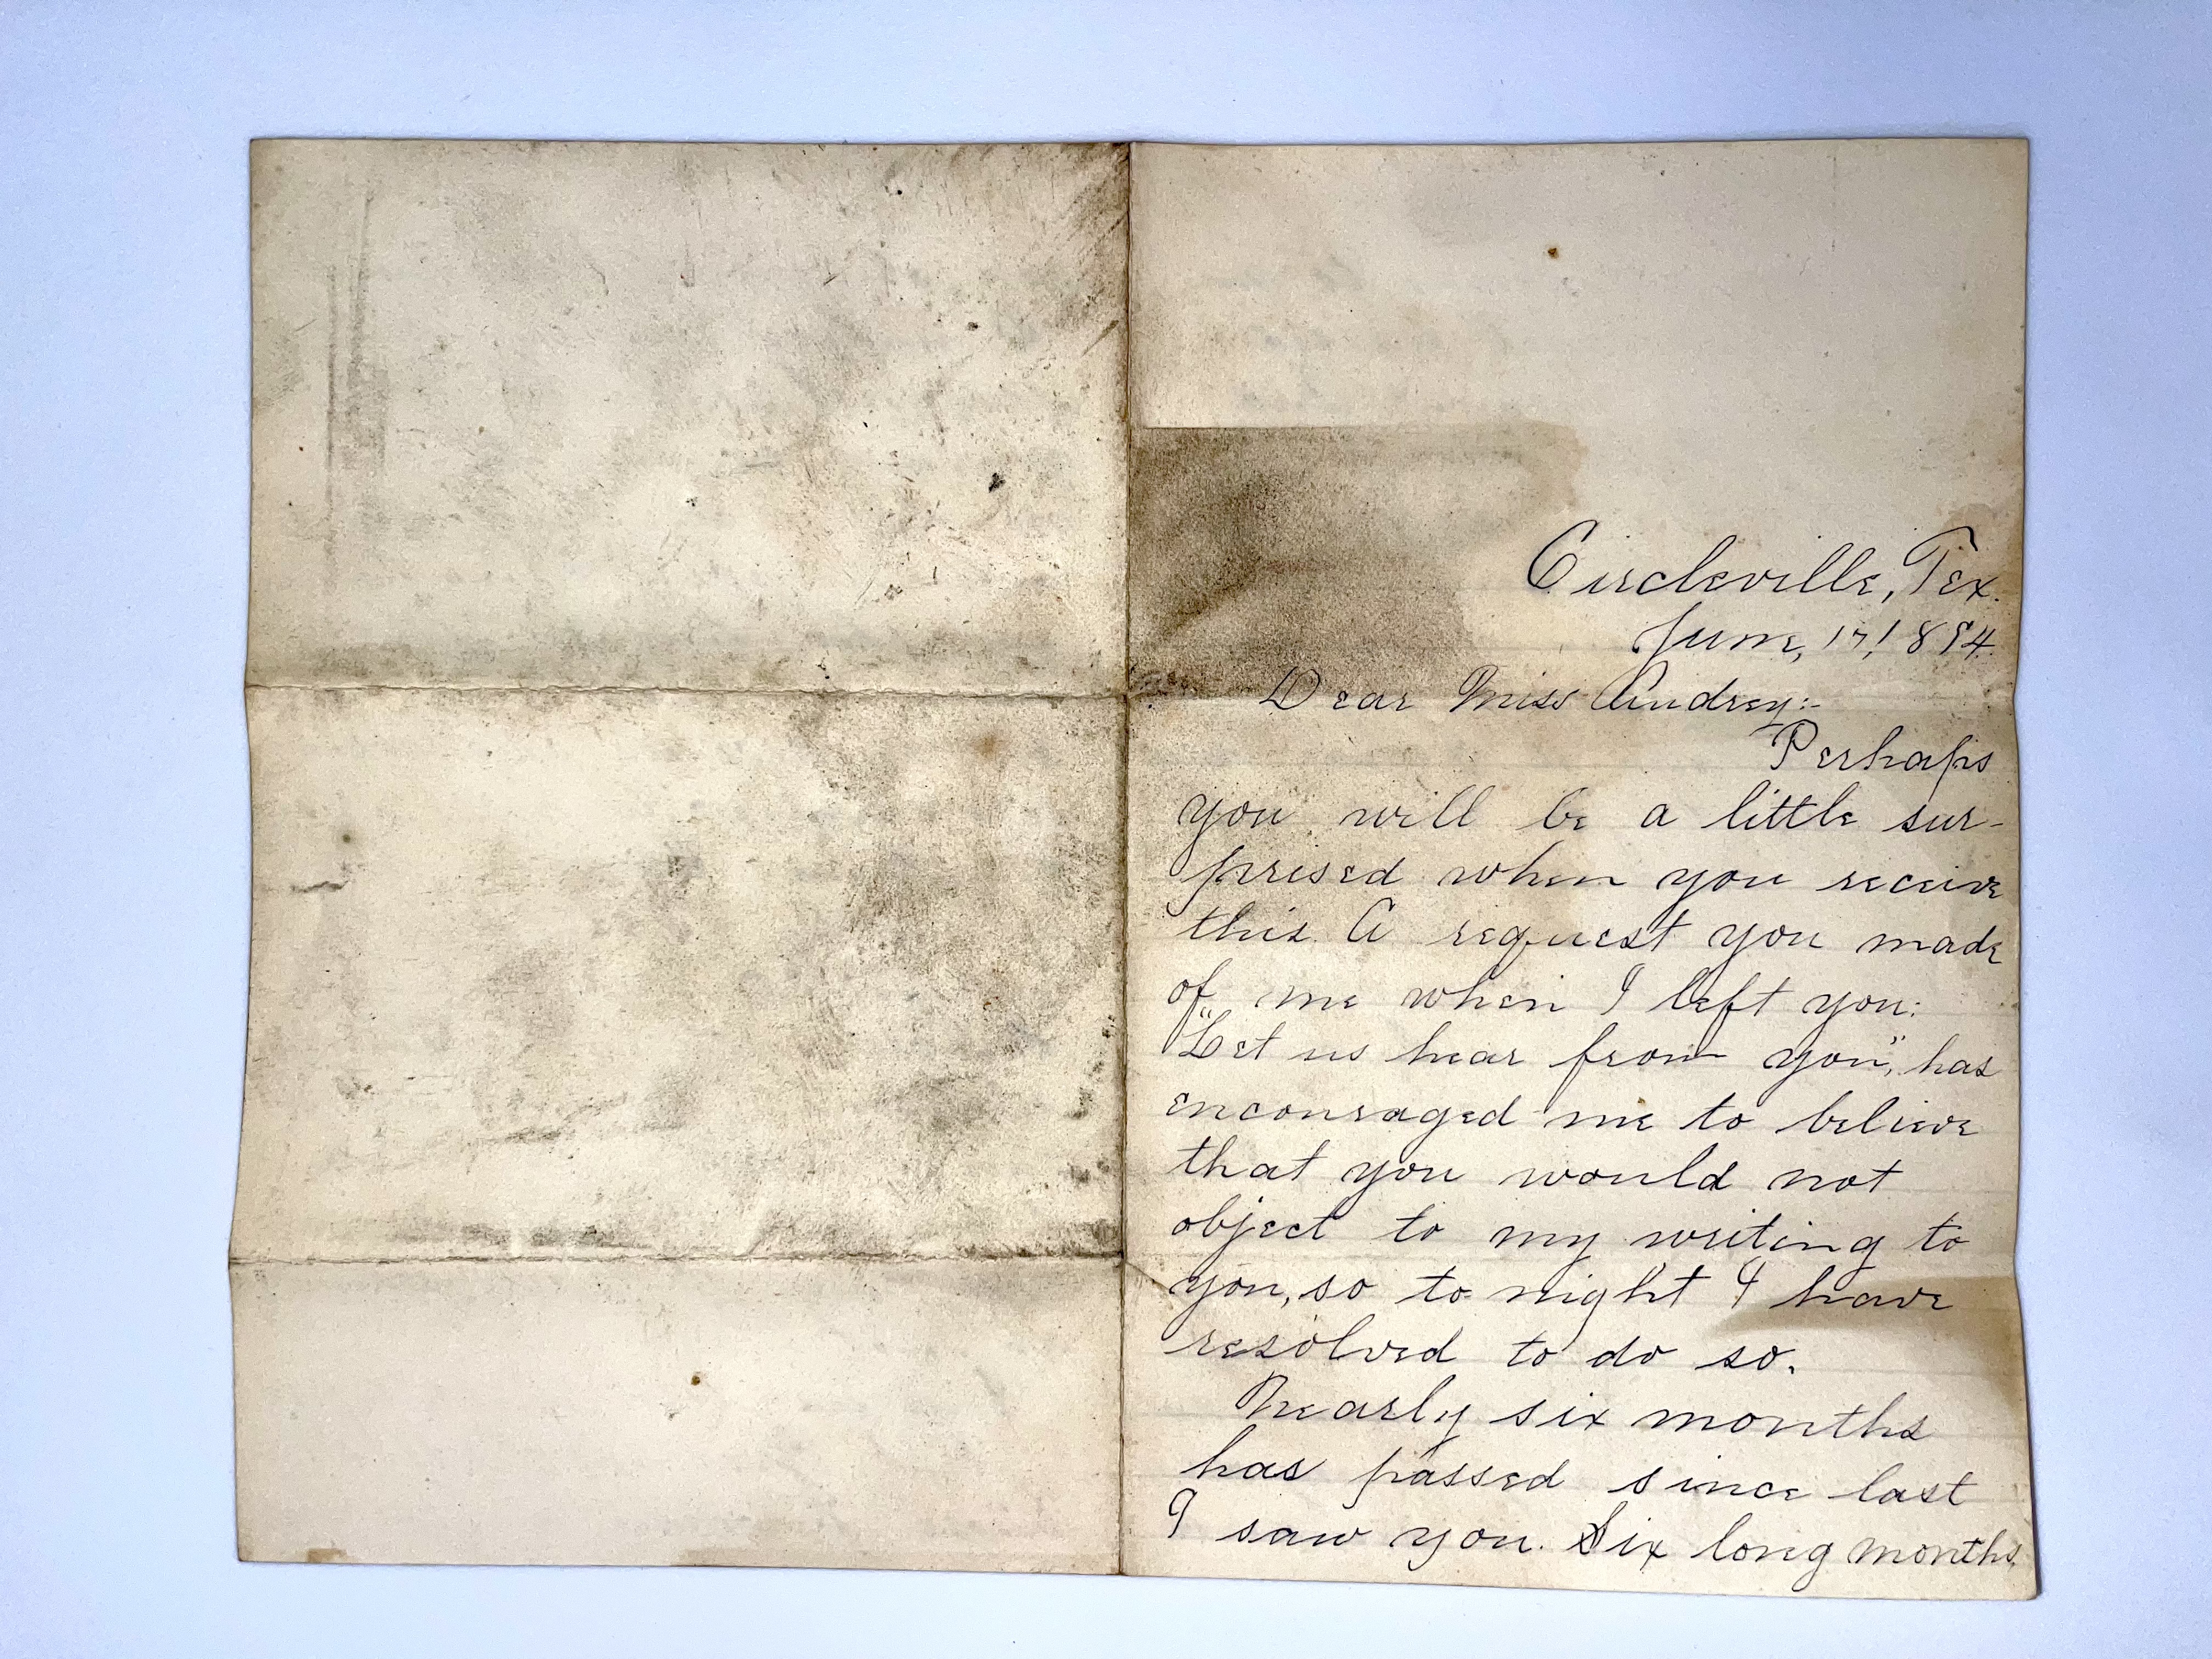 Circleville, Tex.
June, 17, 1894.
Dear Miss Audrey:-
Perhaps
you will be a little sur-
prised when you receive
this. A request you made
of me when I left you:
"Let us hear from you", has
encouraged me to believe
that you would not
object to my writing to
you, so to night I have
resolved to do so.
Nearly six months
has passed since last
I saw you. Six long months,